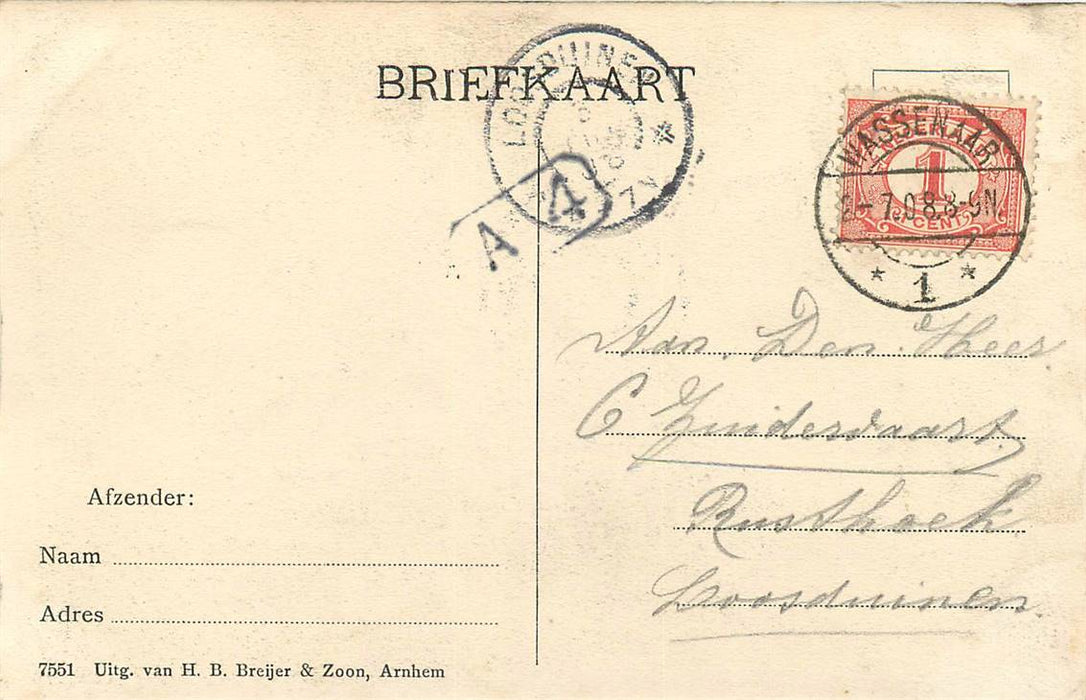 BRIEFKAART
LOOSDUINEN
7N
A 4
WASSENAAR
7.08.8-9N
1
1
CENT
Aan Den Heer
C Zuidervaart
Rusthoek
Loosduinen
Afzender:
Naam
Adres
7551 Uitg. van H. B. Breijer & Zoon, Arnhem